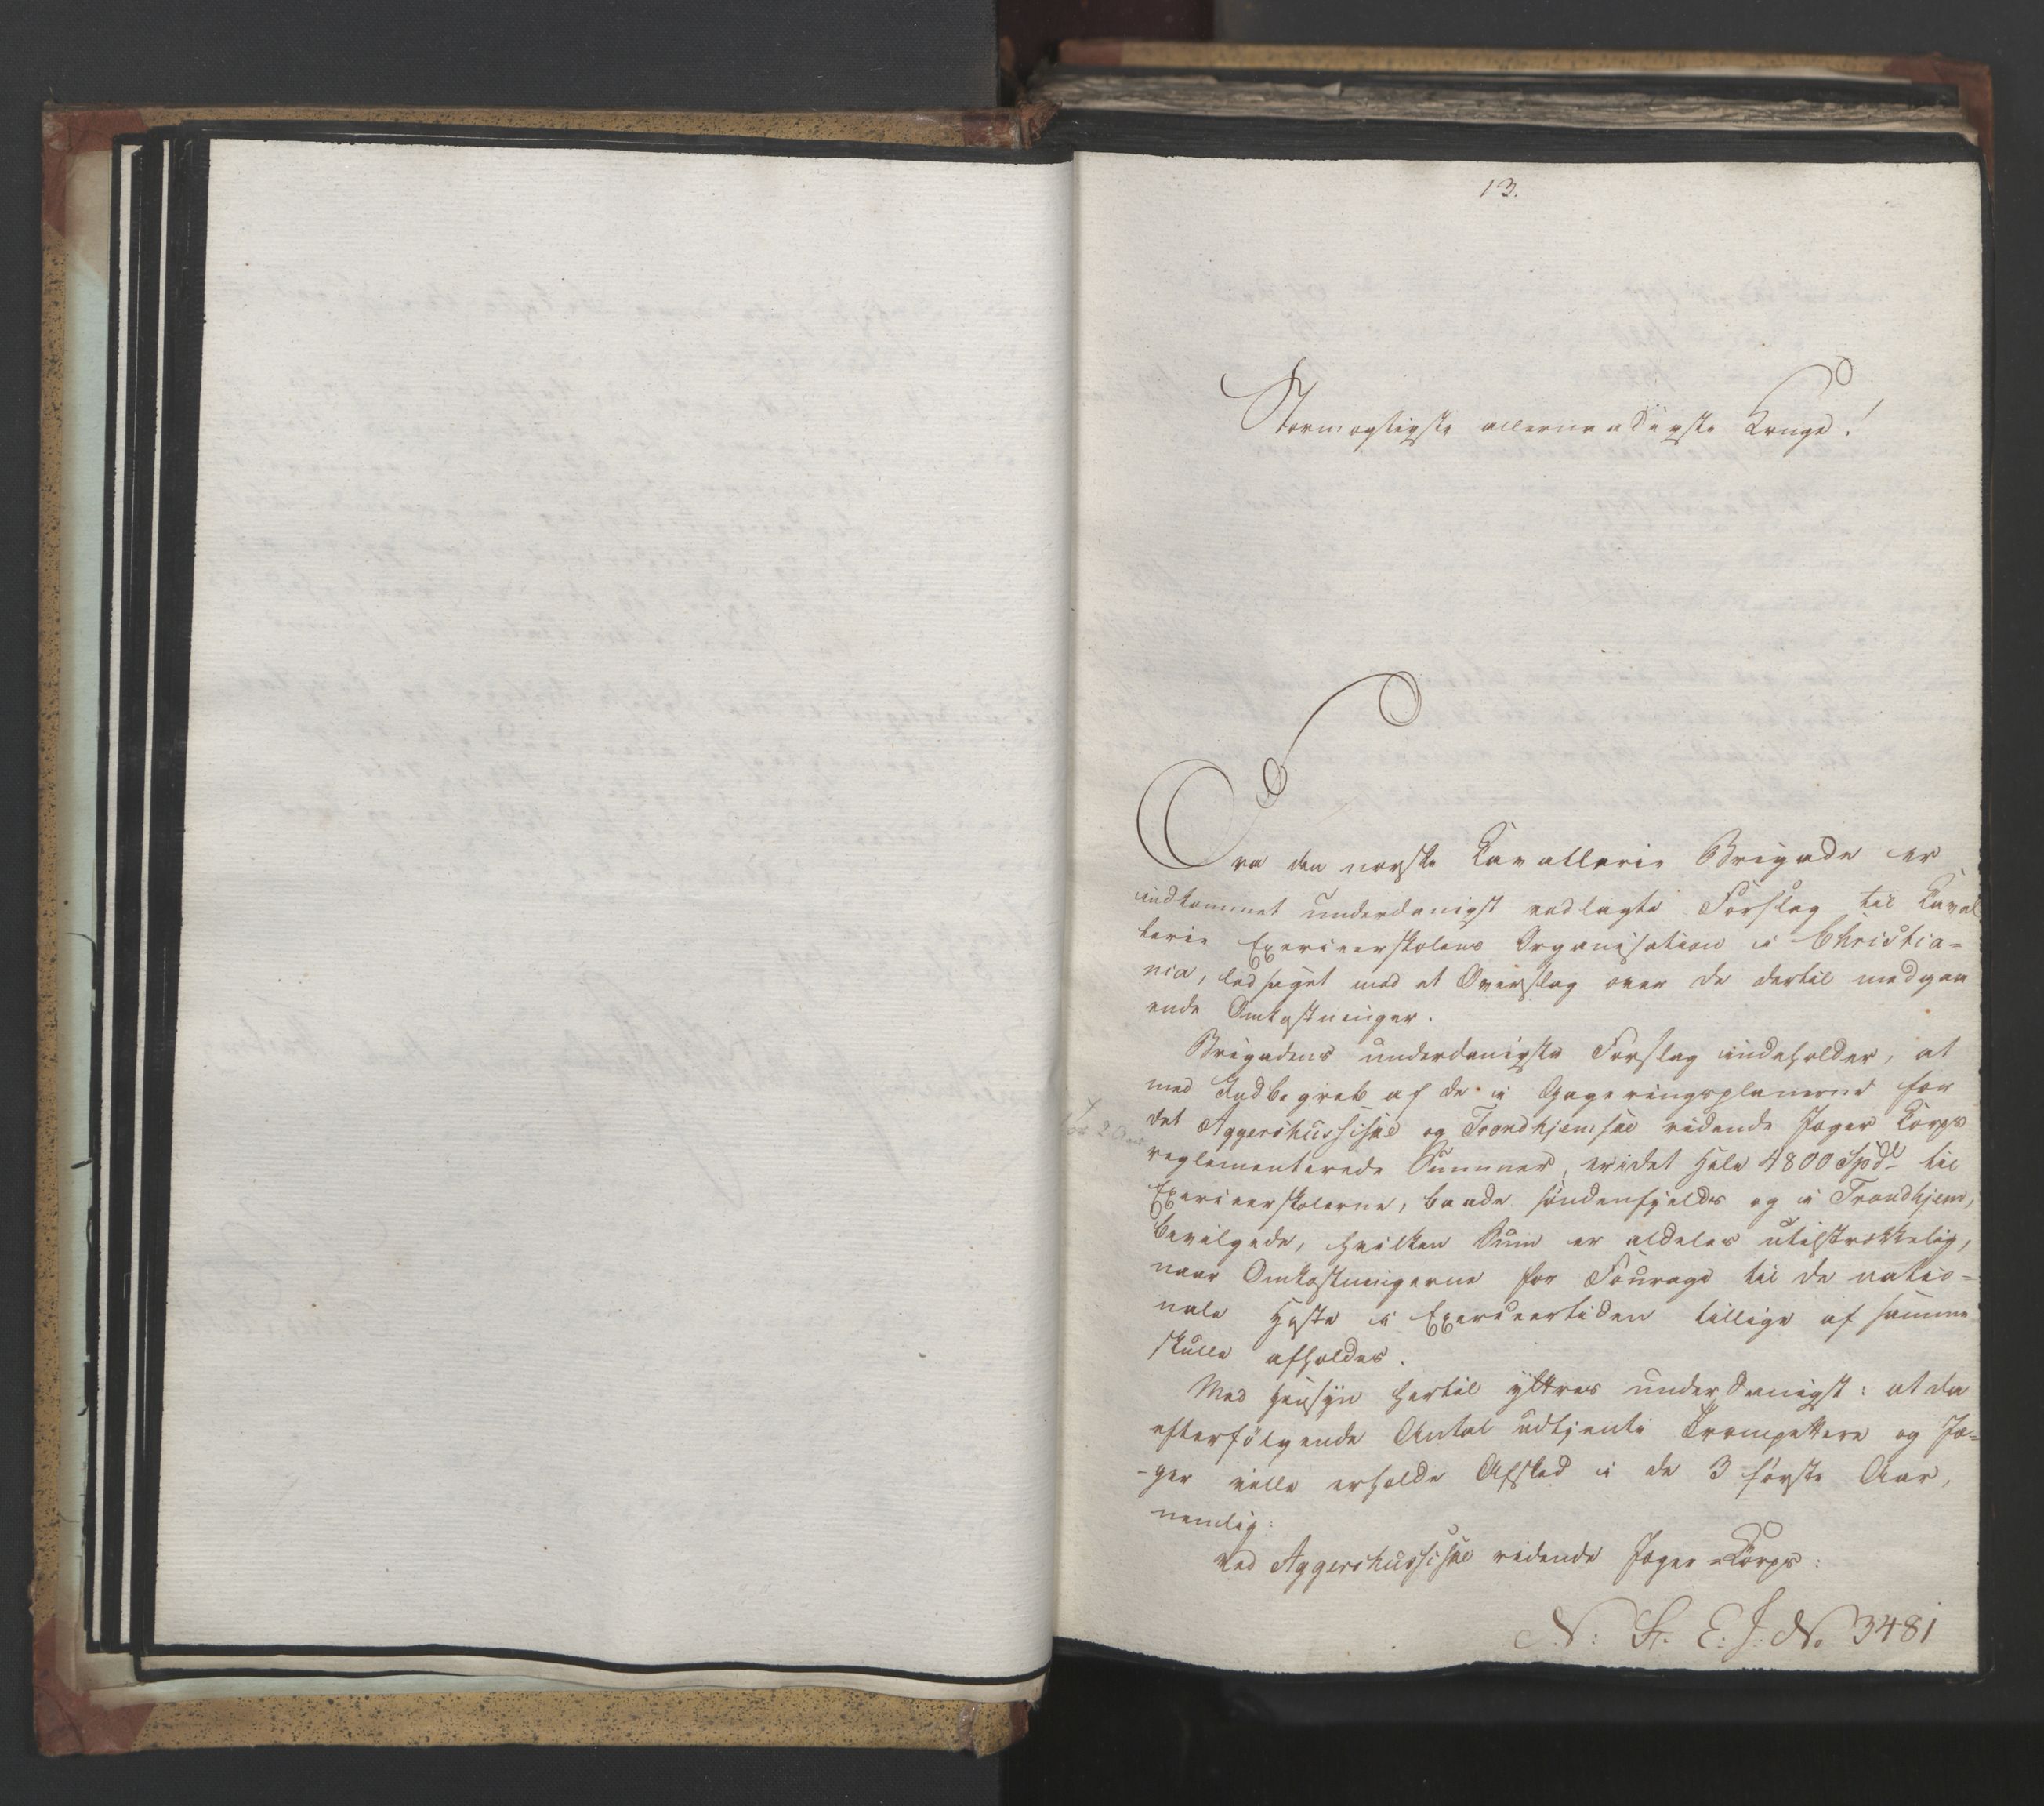 13.
Stormægtigste allernaadigste Konge!
Fra den norske Cavallerie Brigade er
indkommet underdanigst vedlagte Forslag til Caval
lerie Exerceerskolens Organisation i Christia=
nia, ledsaget med et Overslag over de dertil medgaa
ende Omkostninger.
Brigadens underdanigste Forslag indeholder, at
med Indbegreb af de i Gageringsplanerne for
det Aggershussiske og Trondhjemske ridende Jæger Corps
reglementerede Summer, er i det Hele 4800 Spdl til
Exerceerskolerne, baade søndenfjelds og i Trondhjem,
bevilgede, hvilken Sum er aldeles utilstrækkelig,
naar Omkostningerne for Fourage til de natio=
nale Heste i Exerceertiden tillige af samme
skulle afholdes.
Med Hensyn hertil yttres underdanigst: at da
efterfølgende Antal udtjente Trompettere og Jæ=
-ger ville erholde Afsked i de 3 første Aar,
nemlig:
ved Aggershussiske ridende Jæger=Corps:
N: St. E: J: No 3481
for 2 Aar